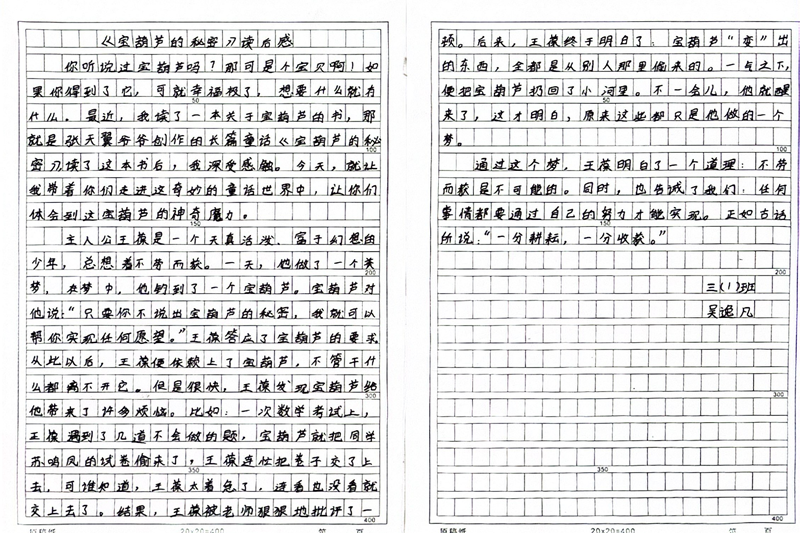 《宝葫芦的秘密》读后感
你听说过宝葫芦吗？那可是个宝贝啊！如
果你得到了它，可就幸福极了，想要什么就有
什么。最近，我读了一本关于宝葫芦的书，那
就是张天翼爷爷创作的长篇童话《宝葫芦的秘
密》读了这本书后，我深受感触。今天，就让
我带着你们走进这奇妙的童话世界中，让你们
体会到这宝葫芦的神奇魔力。
主人公王葆是一个天真活泼、富于幻想的
少年，总想着不劳而获。一天，他做了一个美
梦，在梦中，他钓到了一个宝葫芦。宝葫芦对
他说：“只要你不说出宝葫芦的秘密，我就可以
帮你实现任何愿望。”王葆答应了宝葫芦的要求
从此以后，王葆便依赖上了宝葫芦，不管干什
么都离不开它。但是很快，王葆发现宝葫芦给
他带来了许多烦恼。比如：一次数学考试上，
王葆遇到了几道不会做的题，宝葫芦就把同学
苏鸣凤的试卷偷来了，王葆连忙把卷子交了上
去，可谁知道，王葆太着急了，连看也没看就
交上去了。结果，王葆被老师狠狠地批评了一
20×20=400
第 页
顿。后来，王葆终于明白了，宝葫芦“变”出
的东西，全都是从别人那里偷来的。一气之下，
便把宝葫芦扔回了小河里。不一会儿，他就醒
来了，这才明白，原来这些都只是他做的一个
梦。
通过这个梦，王葆明白了一个道理：不劳
而获是不可能的。同时，也告诫了我们：任何
事情都要通过自己的努力才能实现。正如古话
所说：“一分耕耘，一分收获。”
三（1）班
吴逸凡
20×20=400
第 页